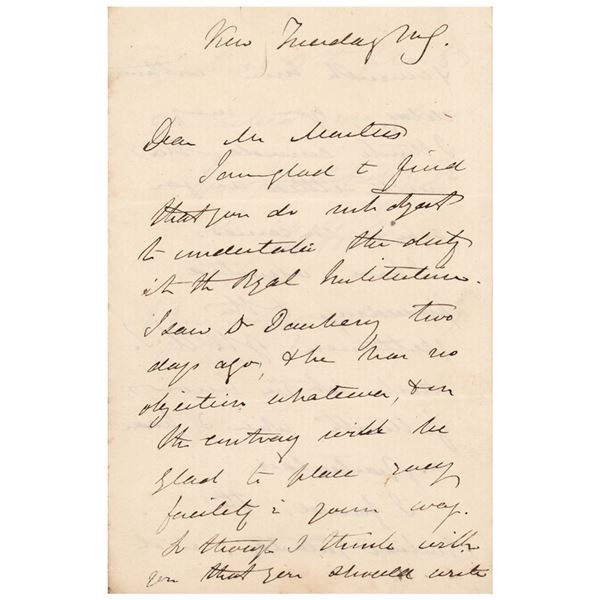 Kew Tuesday Mg.
Dear Mr Masters
I am glad to find
that you do not object
to undertake the duty
at the Royal Institution.
I saw Dr Daubeny two
days ago, & he has no
objection whatever, & on
the contrary will be
glad to place every
facility in your way.
So though I think with
you that you should write